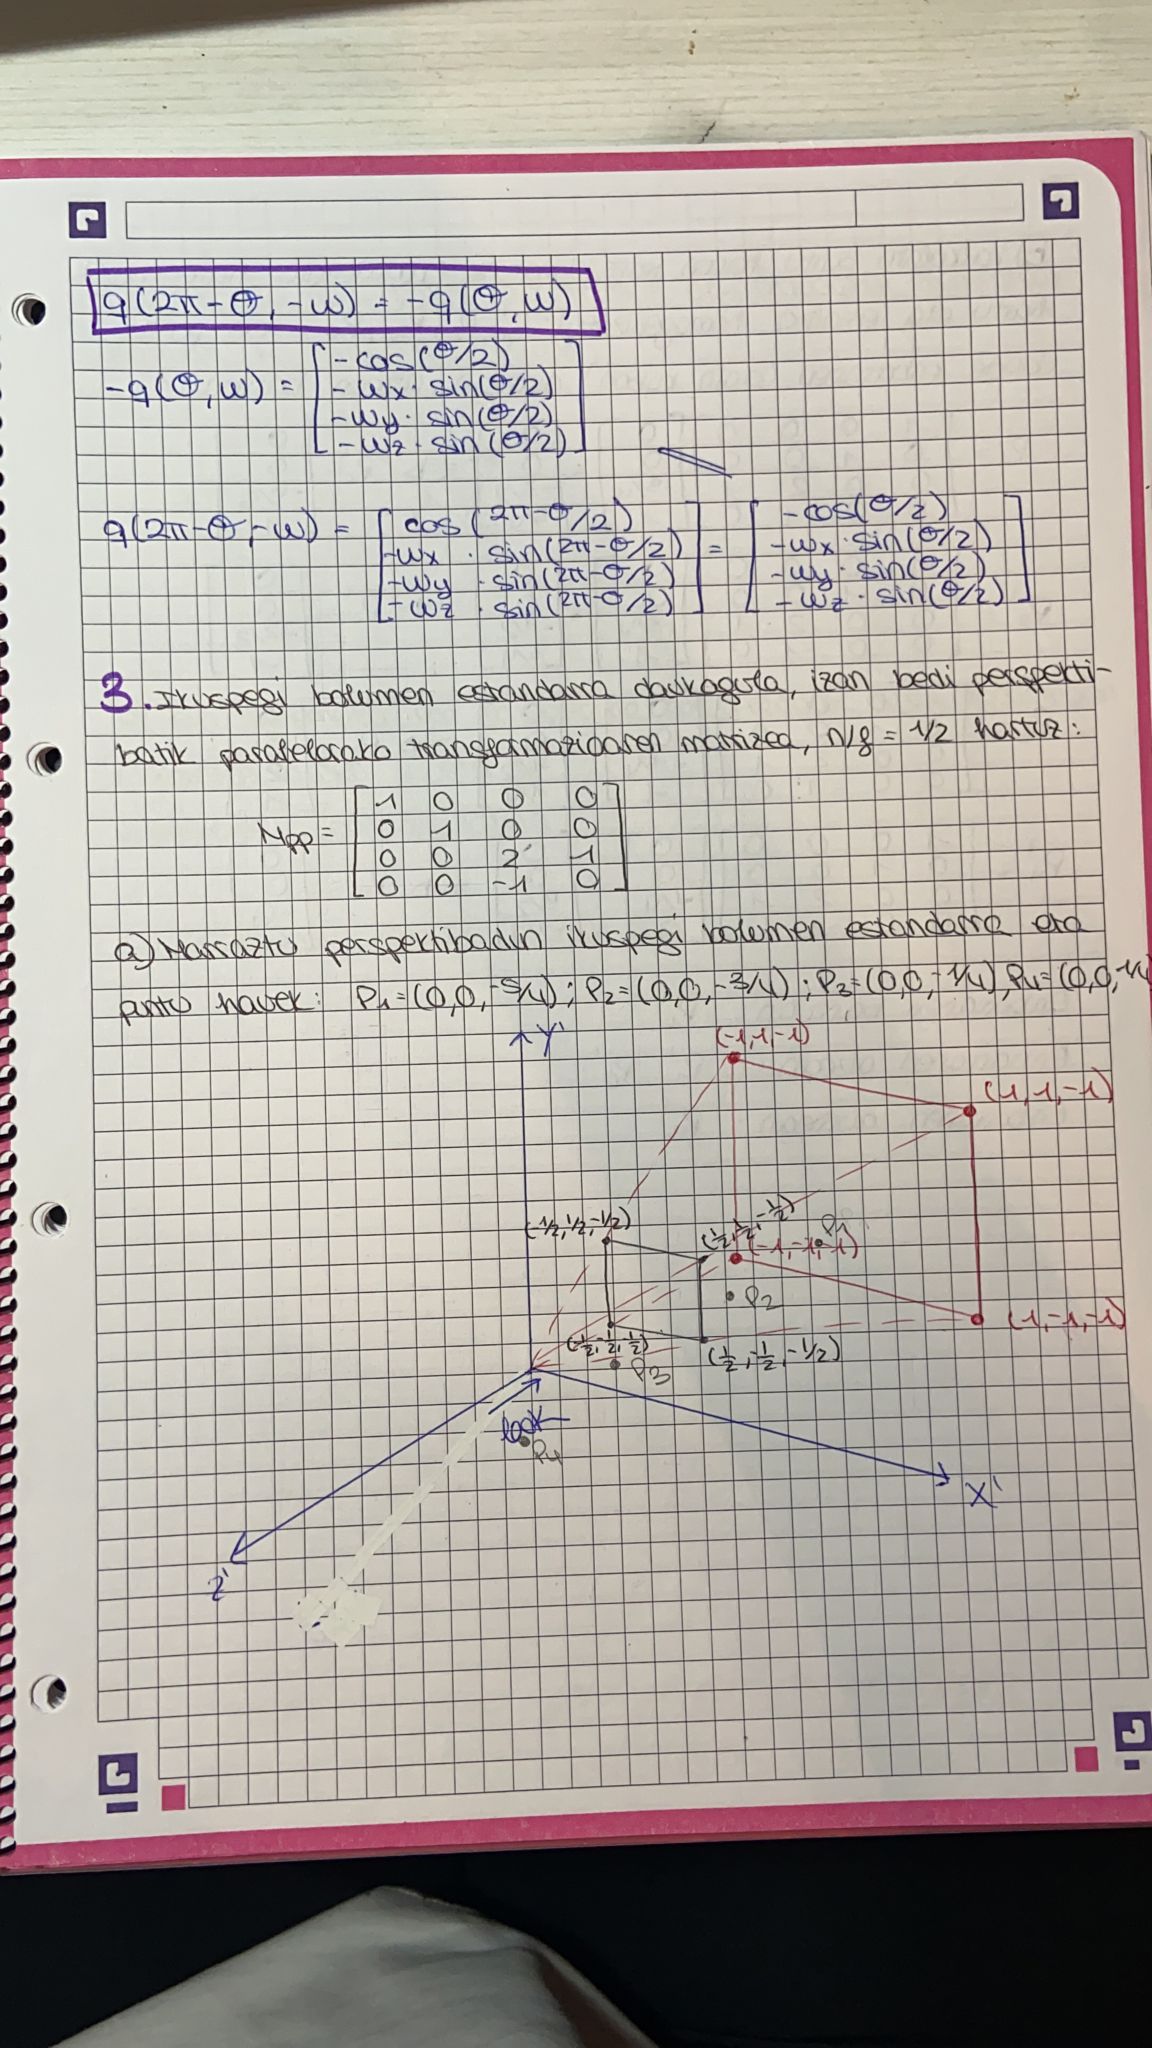 q(2π-θ, -w) = -q(θ, w)
-q(θ, w) = [-cos(θ/2)
-wx · sin(θ/2)
-wy · sin(θ/2)
-wz · sin(θ/2)]
q(2π-θ, -w) = [cos(2π-θ/2)
-wx · sin(2π-θ/2)
-wy · sin(2π-θ/2)
-wz · sin(2π-θ/2)] = [-cos(θ/2)
-wx · sin(θ/2)
-wy · sin(θ/2)
-wz · sin(θ/2)]
3. Ikuspegi bolumen estandarra daukagula, izan bedi perspekti-
batik paralelorako transformazioaren matrizea, n/f = 1/2 hartuz:
Mpp = [1 0 0 0
0 1 0 0
0 0 2 1
0 0 -1 0]
a) Marraztu perspektibadun ikuspegi bolumen estandarra eta
puntu hauek: P1=(0,0,-5/4); P2=(0,0,-3/4); P3=(0,0,-1/4), P4=(0,0,1/4
Y'
(-1,1,-1)
(1,1,-1)
(-1/2,1/2,-1/2)
(1/2,1/2,-1/2)
P1
(-1,-1,-1)
P2
(1,-1,-1)
(-1/2,-1/2,-1/2)
(1/2,-1/2,-1/2)
P3
look
P4
X'
Z'